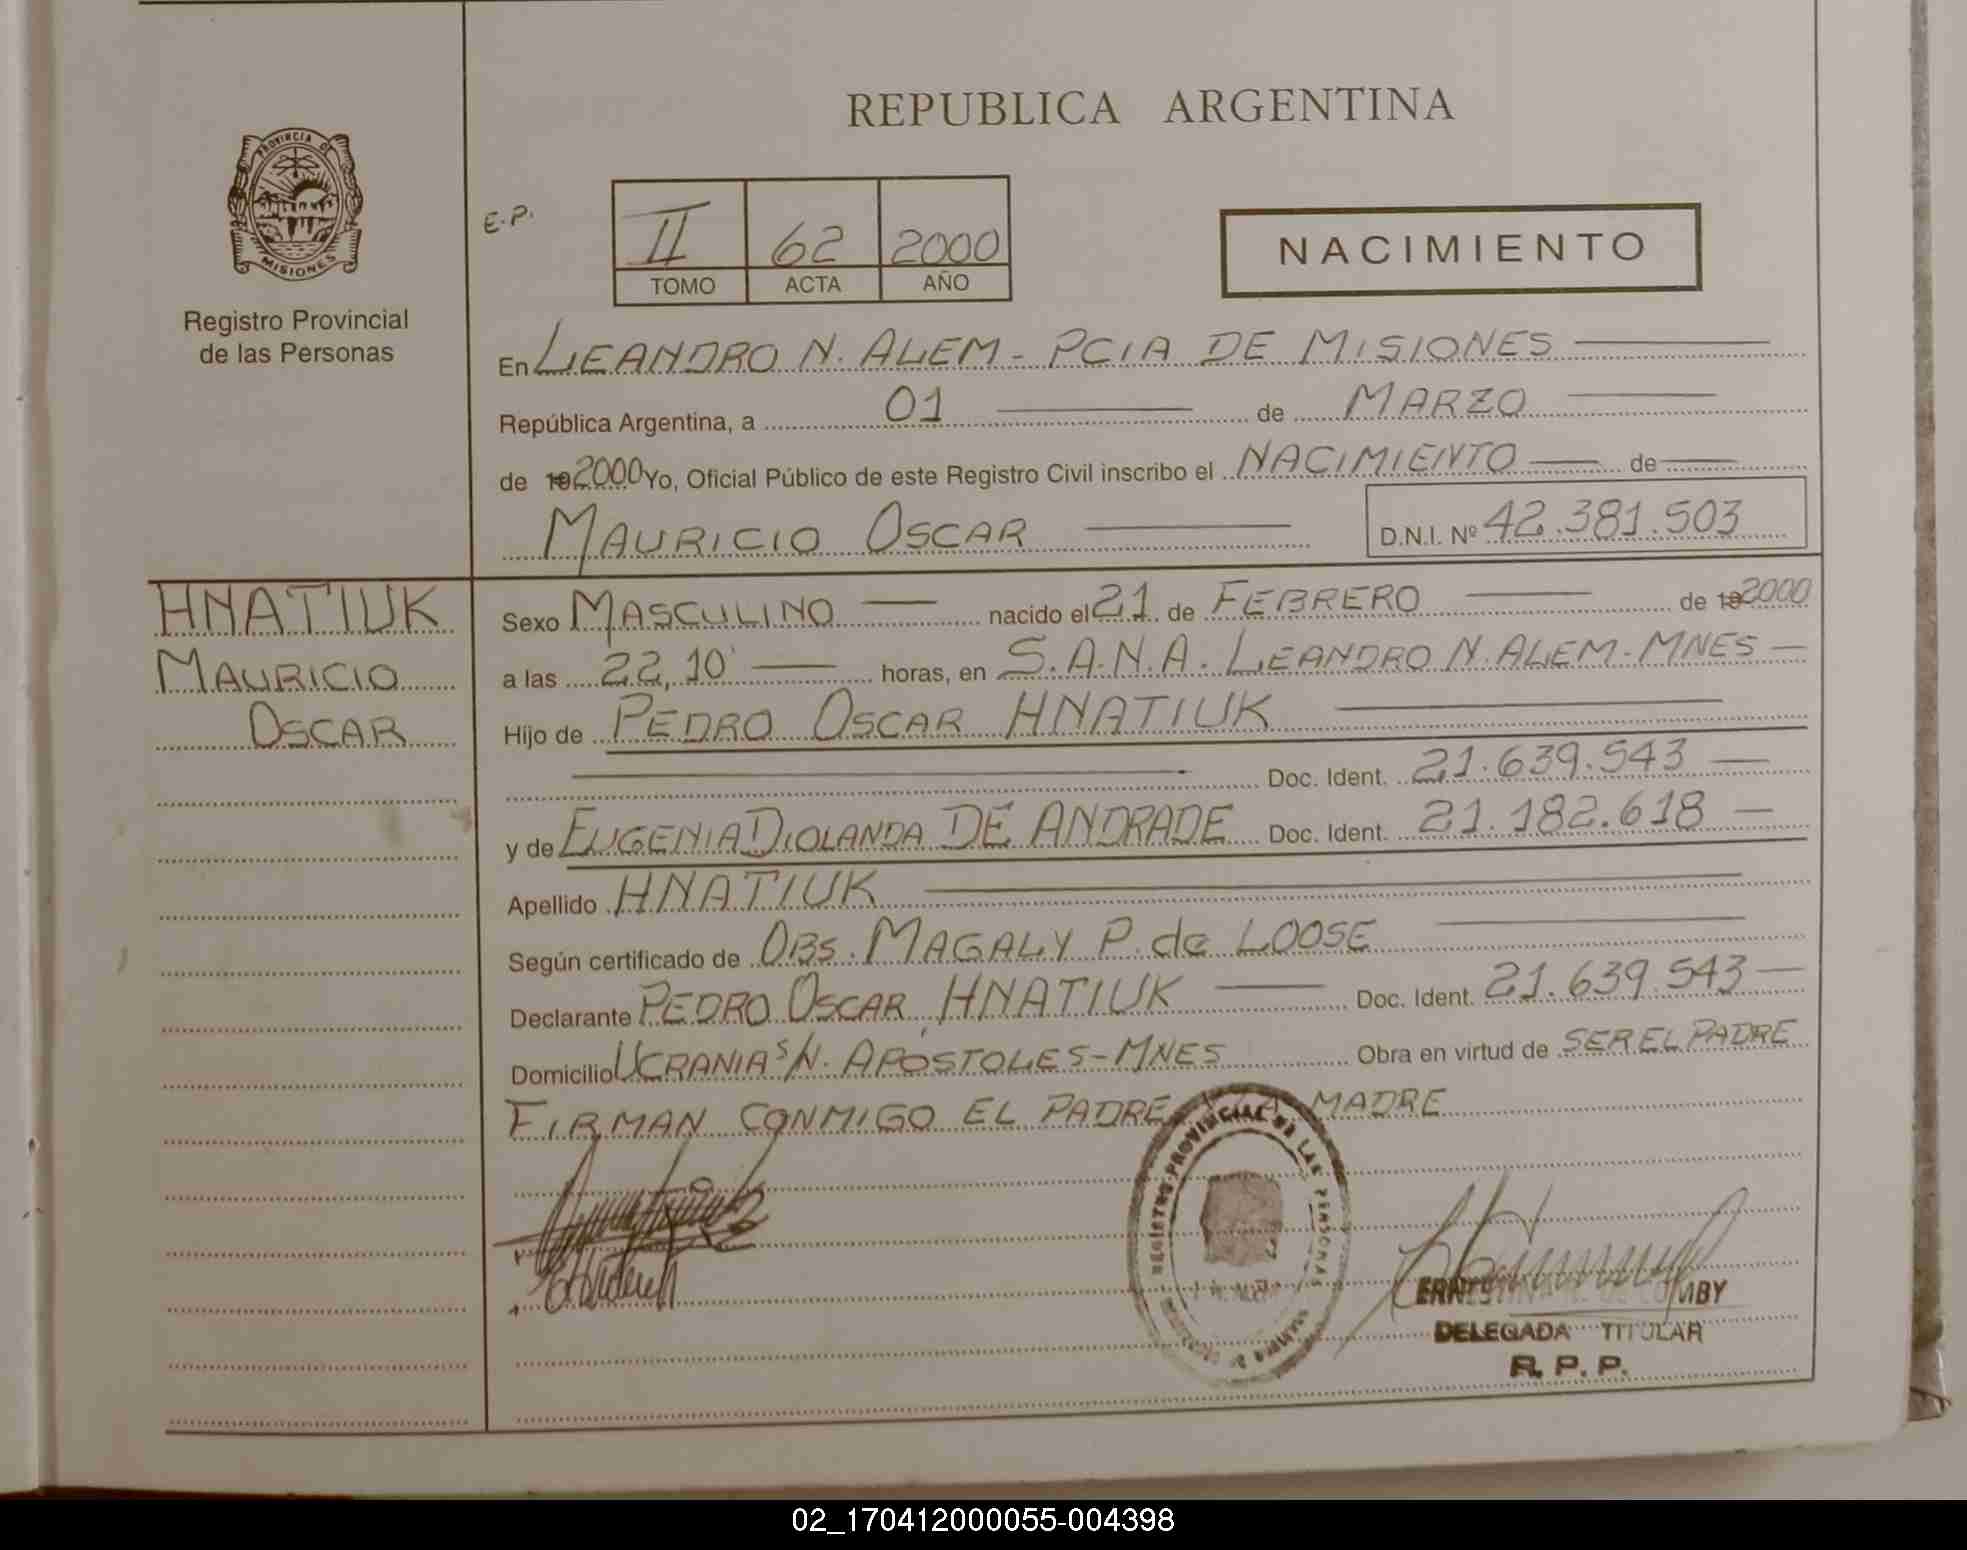 REPUBLICA ARGENTINA
PROVINCIA DE
MISIONES
Registro Provincial
de las Personas
E.P.
II 62 2000
TOMO ACTA AÑO
NACIMIENTO
En LEANDRO N. ALEM - PCIA DE MISIONES
República Argentina, a 01 de MARZO
de 19 2000 Yo, Oficial Público de este Registro Civil inscribo el NACIMIENTO de
MAURICIO OSCAR D.N.I. Nº 42.381.503
HNATIUK
MAURICIO
OSCAR
Sexo MASCULINO nacido el 21 de FEBRERO de 19 2000
a las 22,10' horas, en S.A.N.A. LEANDRO N. ALEM - MNES
Hijo de PEDRO OSCAR HNATIUK
Doc. Ident. 21.639.543
y de EUGENIA DIOLANDA DE ANDRADE Doc. Ident. 21.182.618
Apellido HNATIUK
Según certificado de OBS. MAGALY P. de LOOSE
Declarante PEDRO OSCAR HNATIUK Doc. Ident. 21.639.543
Domicilio UCRANIA S/N. APOSTOLES - MNES Obra en virtud de SER EL PADRE
FIRMAN CONMIGO EL PADRE Y LA MADRE
REGISTRO PROVINCIAL DE LAS PERSONAS
DELEGADA TITULAR
R. P. P.
02_170412000055-004398